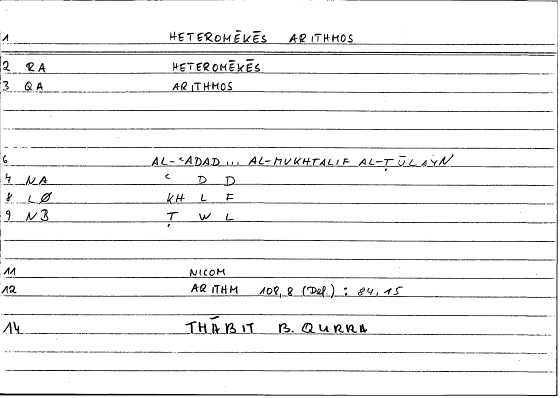 1 HETEROMĒKĒS ARITHMOS
2 RA HETEROMĒKĒS
3 QA ARITHMOS
6 AL-ʿADAD ... AL-MUKHTALIF AL-ṬŪLAYN
4 NA ʿ D D
8 LØ KH L F
9 NB Ṭ W L
11 NICOM
12 ARITHM 108,8 (Def.) : 84,15
14 THĀBIT B. QURRA